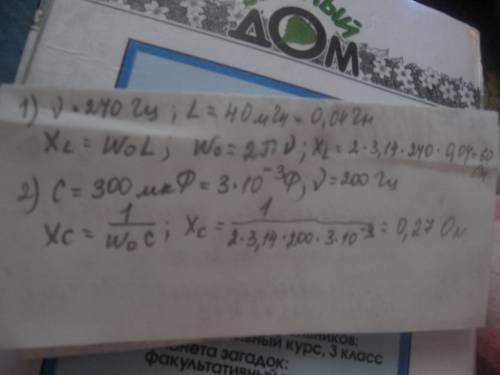 ДОМ
1) ν = 240 Гц; L = 40 мГн = 0,04 Гн
XL = W0L; W0 = 2πν; XL = 2·3,14·240·0,04 = 60 Ом
2) C = 300 мкФ = 3·10⁻³Ф, ν = 200 Гц
XC = 1/W0C; XC = 1/2·3,14·200·3·10⁻³ = 0,27 Ом
курс, 3 класс
планета загадок:
факультативный